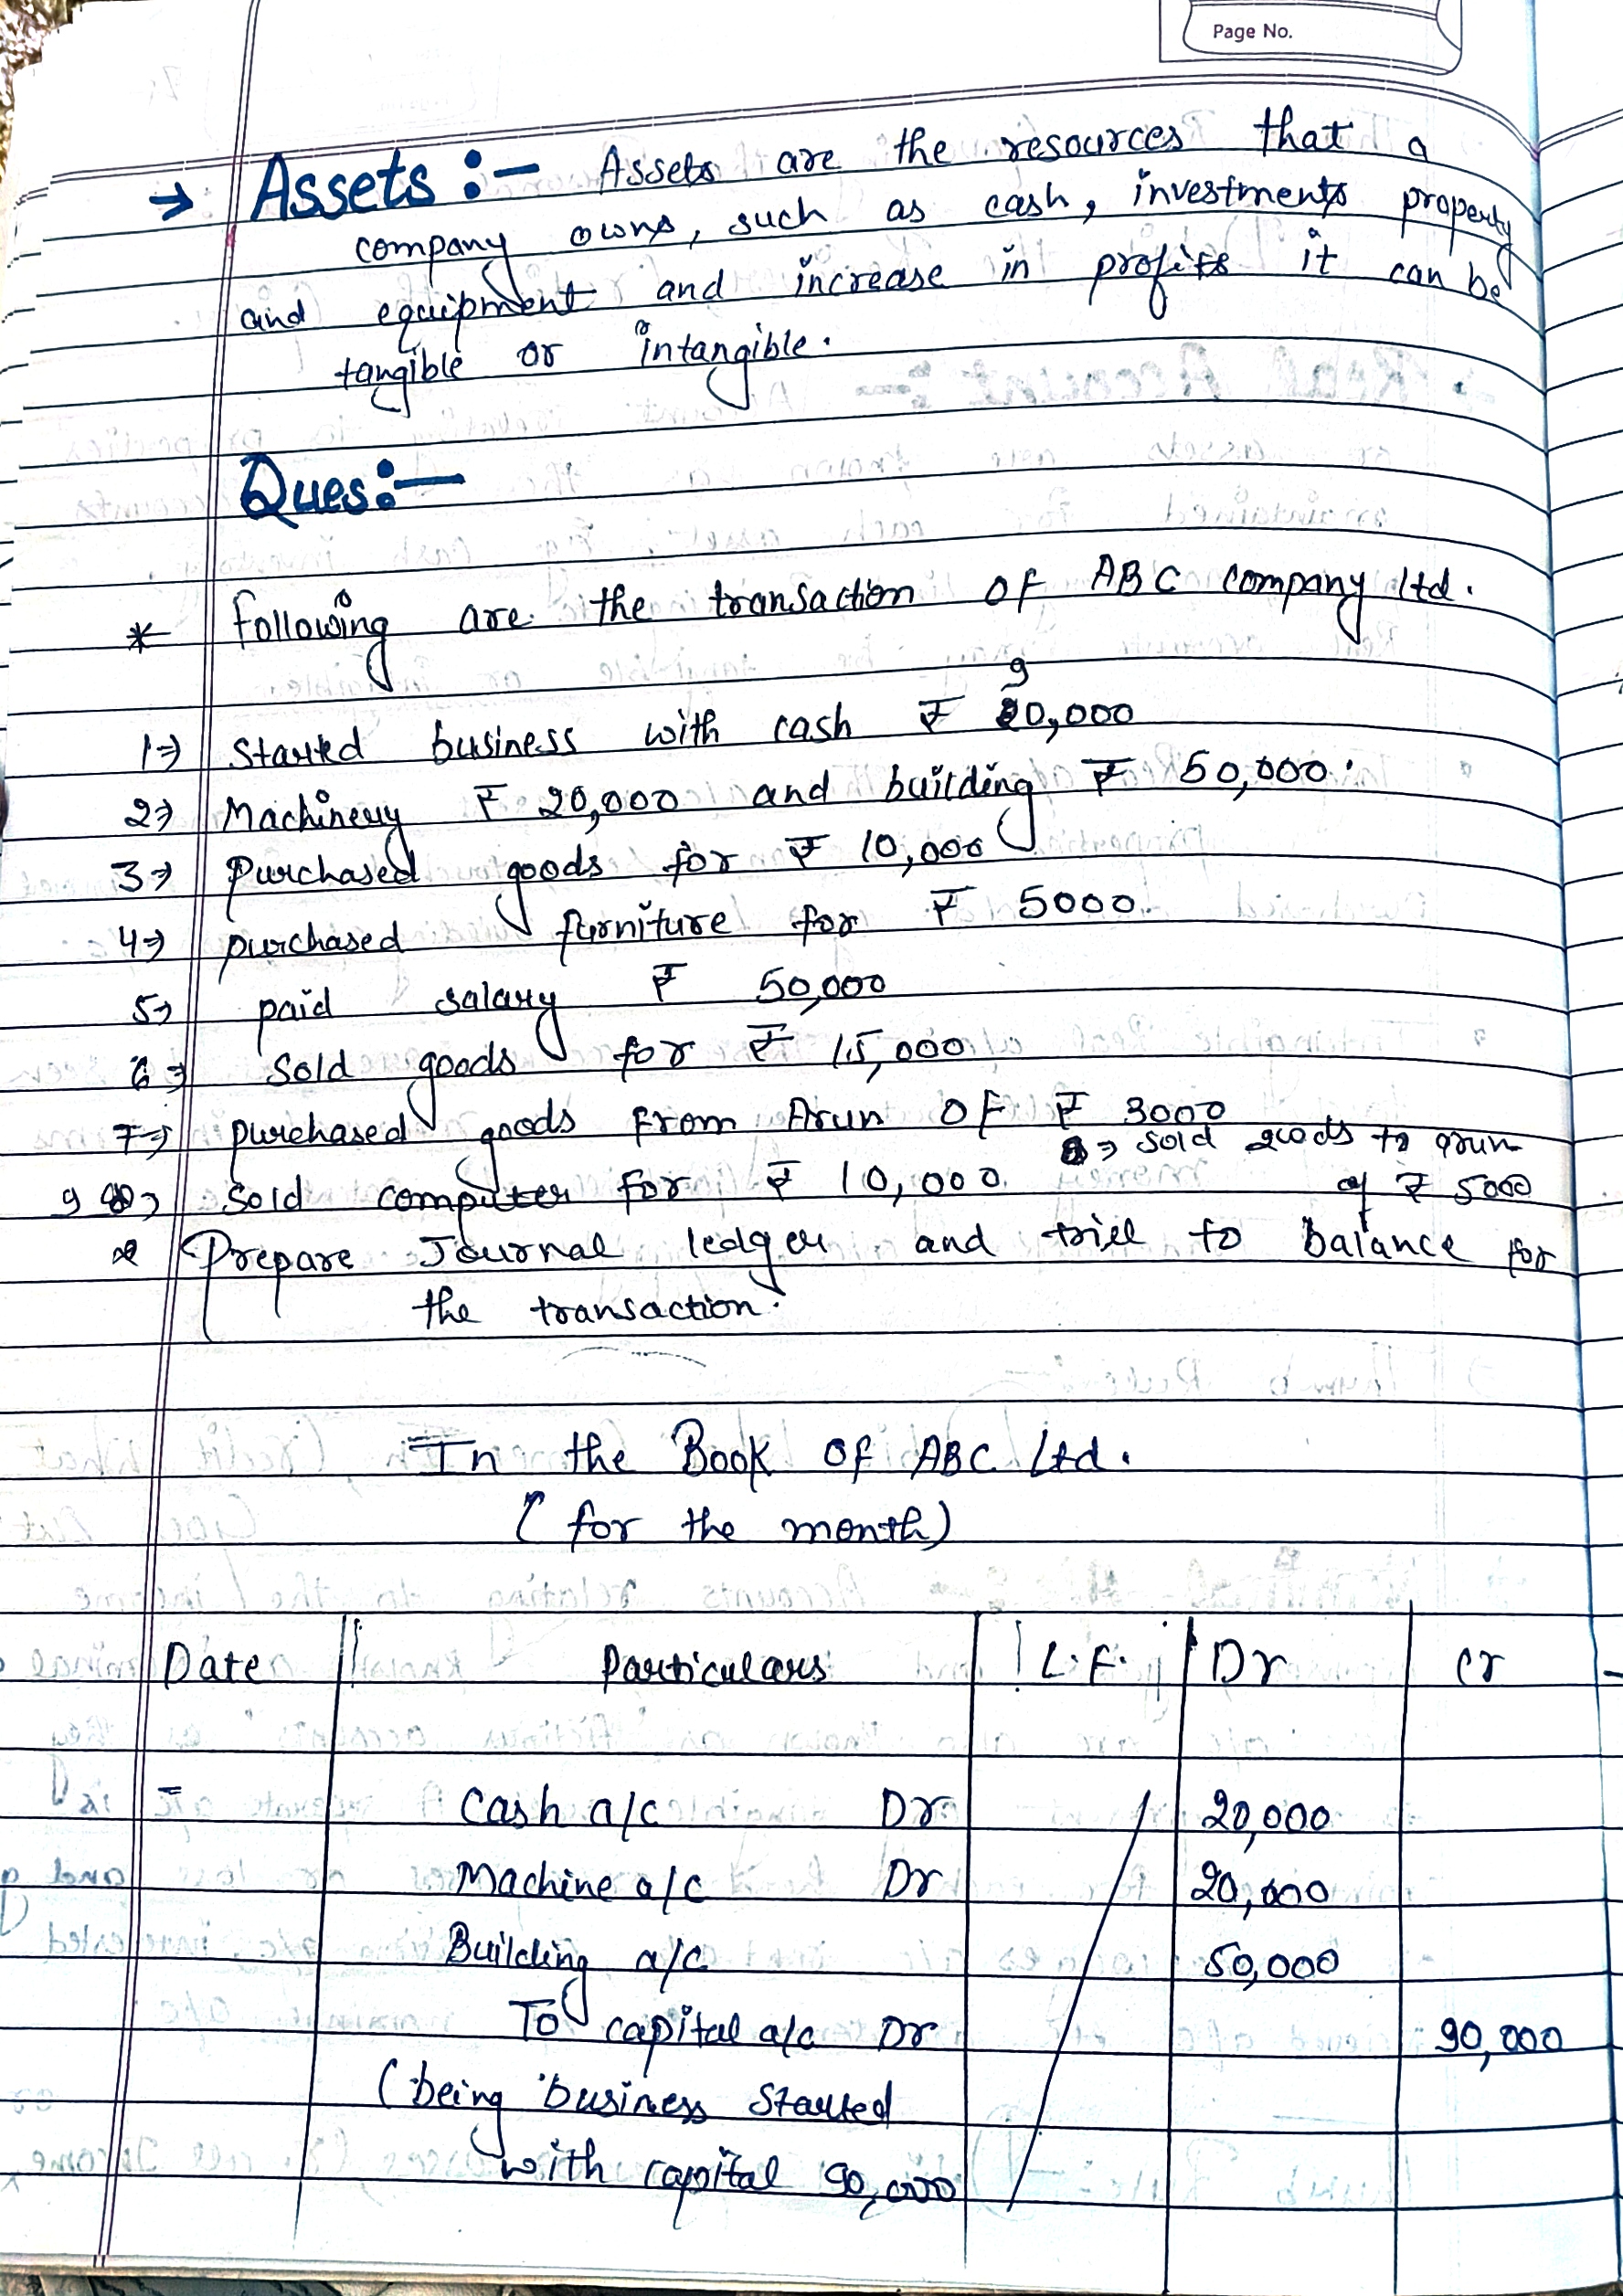 Page No.
→ Assets :- Assets are the resources that a
company owns, such as cash, investments property
and equipment and increase in profits it can be
tangible or intangible.
Ques:-
* following are the transaction of ABC company ltd.
1⇒ Started business with cash ₹ 20,000
2⇒ Machinery ₹ 20,000 and building ₹ 50,000.
3⇒ Purchased goods for ₹ 10,000
4⇒ purchased furniture for ₹ 5000.
5⇒ paid salary ₹ 50,000
6⇒ Sold goods for ₹ 15,000
7⇒ purchased goods from Arun of ₹ 3000
8⇒ sold goods to arun
of ₹ 5000
9⇒ Sold computer for ₹ 10,000.
* Prepare Journal ledger and triel to balance for
the transaction.
In the Book of ABC Ltd.
(for the month)
Date Particulars L.F. Dr Cr
- Cash a/c Dr 20,000
Machine a/c Dr 20,000
Building a/c 50,000
To capital a/c Dr 90,000
(being business Started
with capital 90,000